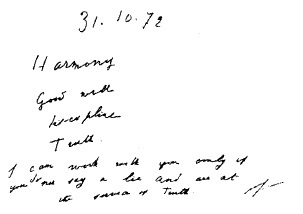 31.10.72
Harmony
Good will
Discipline
Truth
I can work with you only if
you do not say a lie and are at
the service of Truth